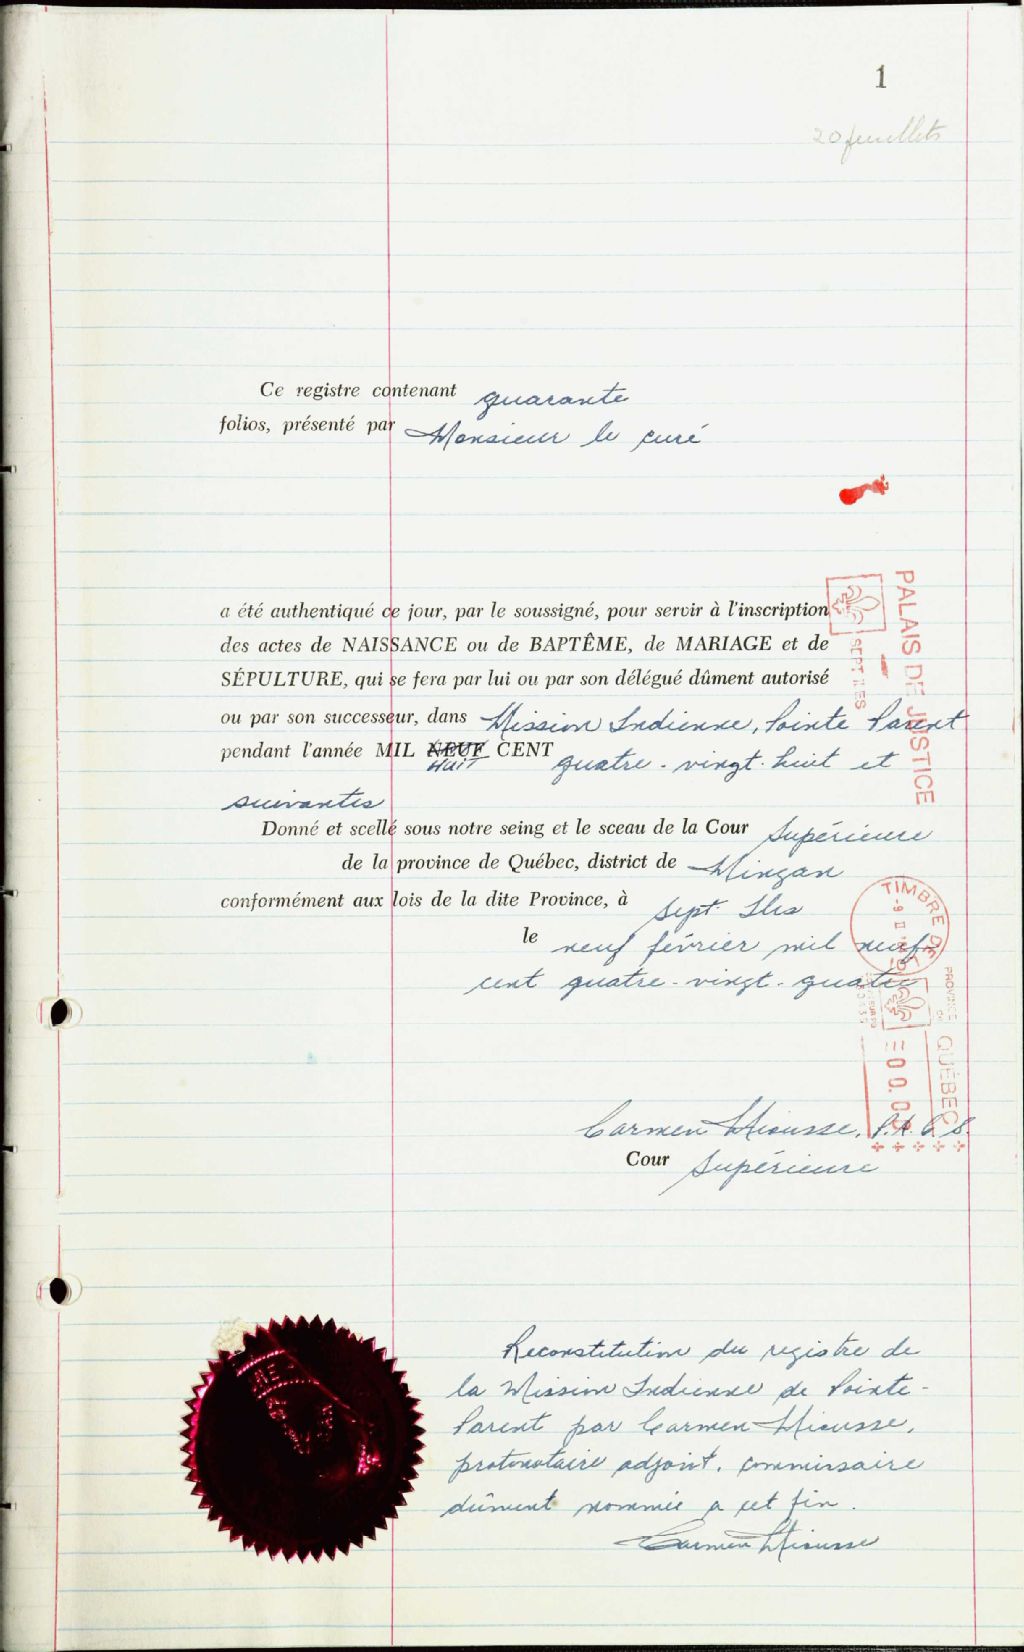 1
20 feuillets
Ce registre contenant quarante
folios, présenté par Monsieur le curé
a été authentiqué ce jour, par le soussigné, pour servir à l'inscription
des actes de NAISSANCE ou de BAPTÊME, de MARIAGE et de
SÉPULTURE, qui se fera par lui ou par son délégué dûment autorisé
ou par son successeur, dans Mission Indienne, Pointe Parent
pendant l'année MIL NEUF CENT quatre-vingt-huit et
HUIT
suivantes
Donné et scellé sous notre seing et le sceau de la Cour Supérieure
de la province de Québec, district de Mingan
conformément aux lois de la dite Province, à Sept-Iles
le neuf février mil neuf
cent quatre-vingt-quatre
Carmen Hiousse, P.A.C.S.
Cour Supérieure
Reconstitution du registre de
la Mission Indienne de Pointe-
Parent par Carmen Hiousse,
protonotaire adjoint, commissaire
dûment nommée a cet fin.
Carmen Hiousse
PALAIS DE JUSTICE
SEPT ILES
TIMBRE DE
PROVINCE
DE
QUÉBEC